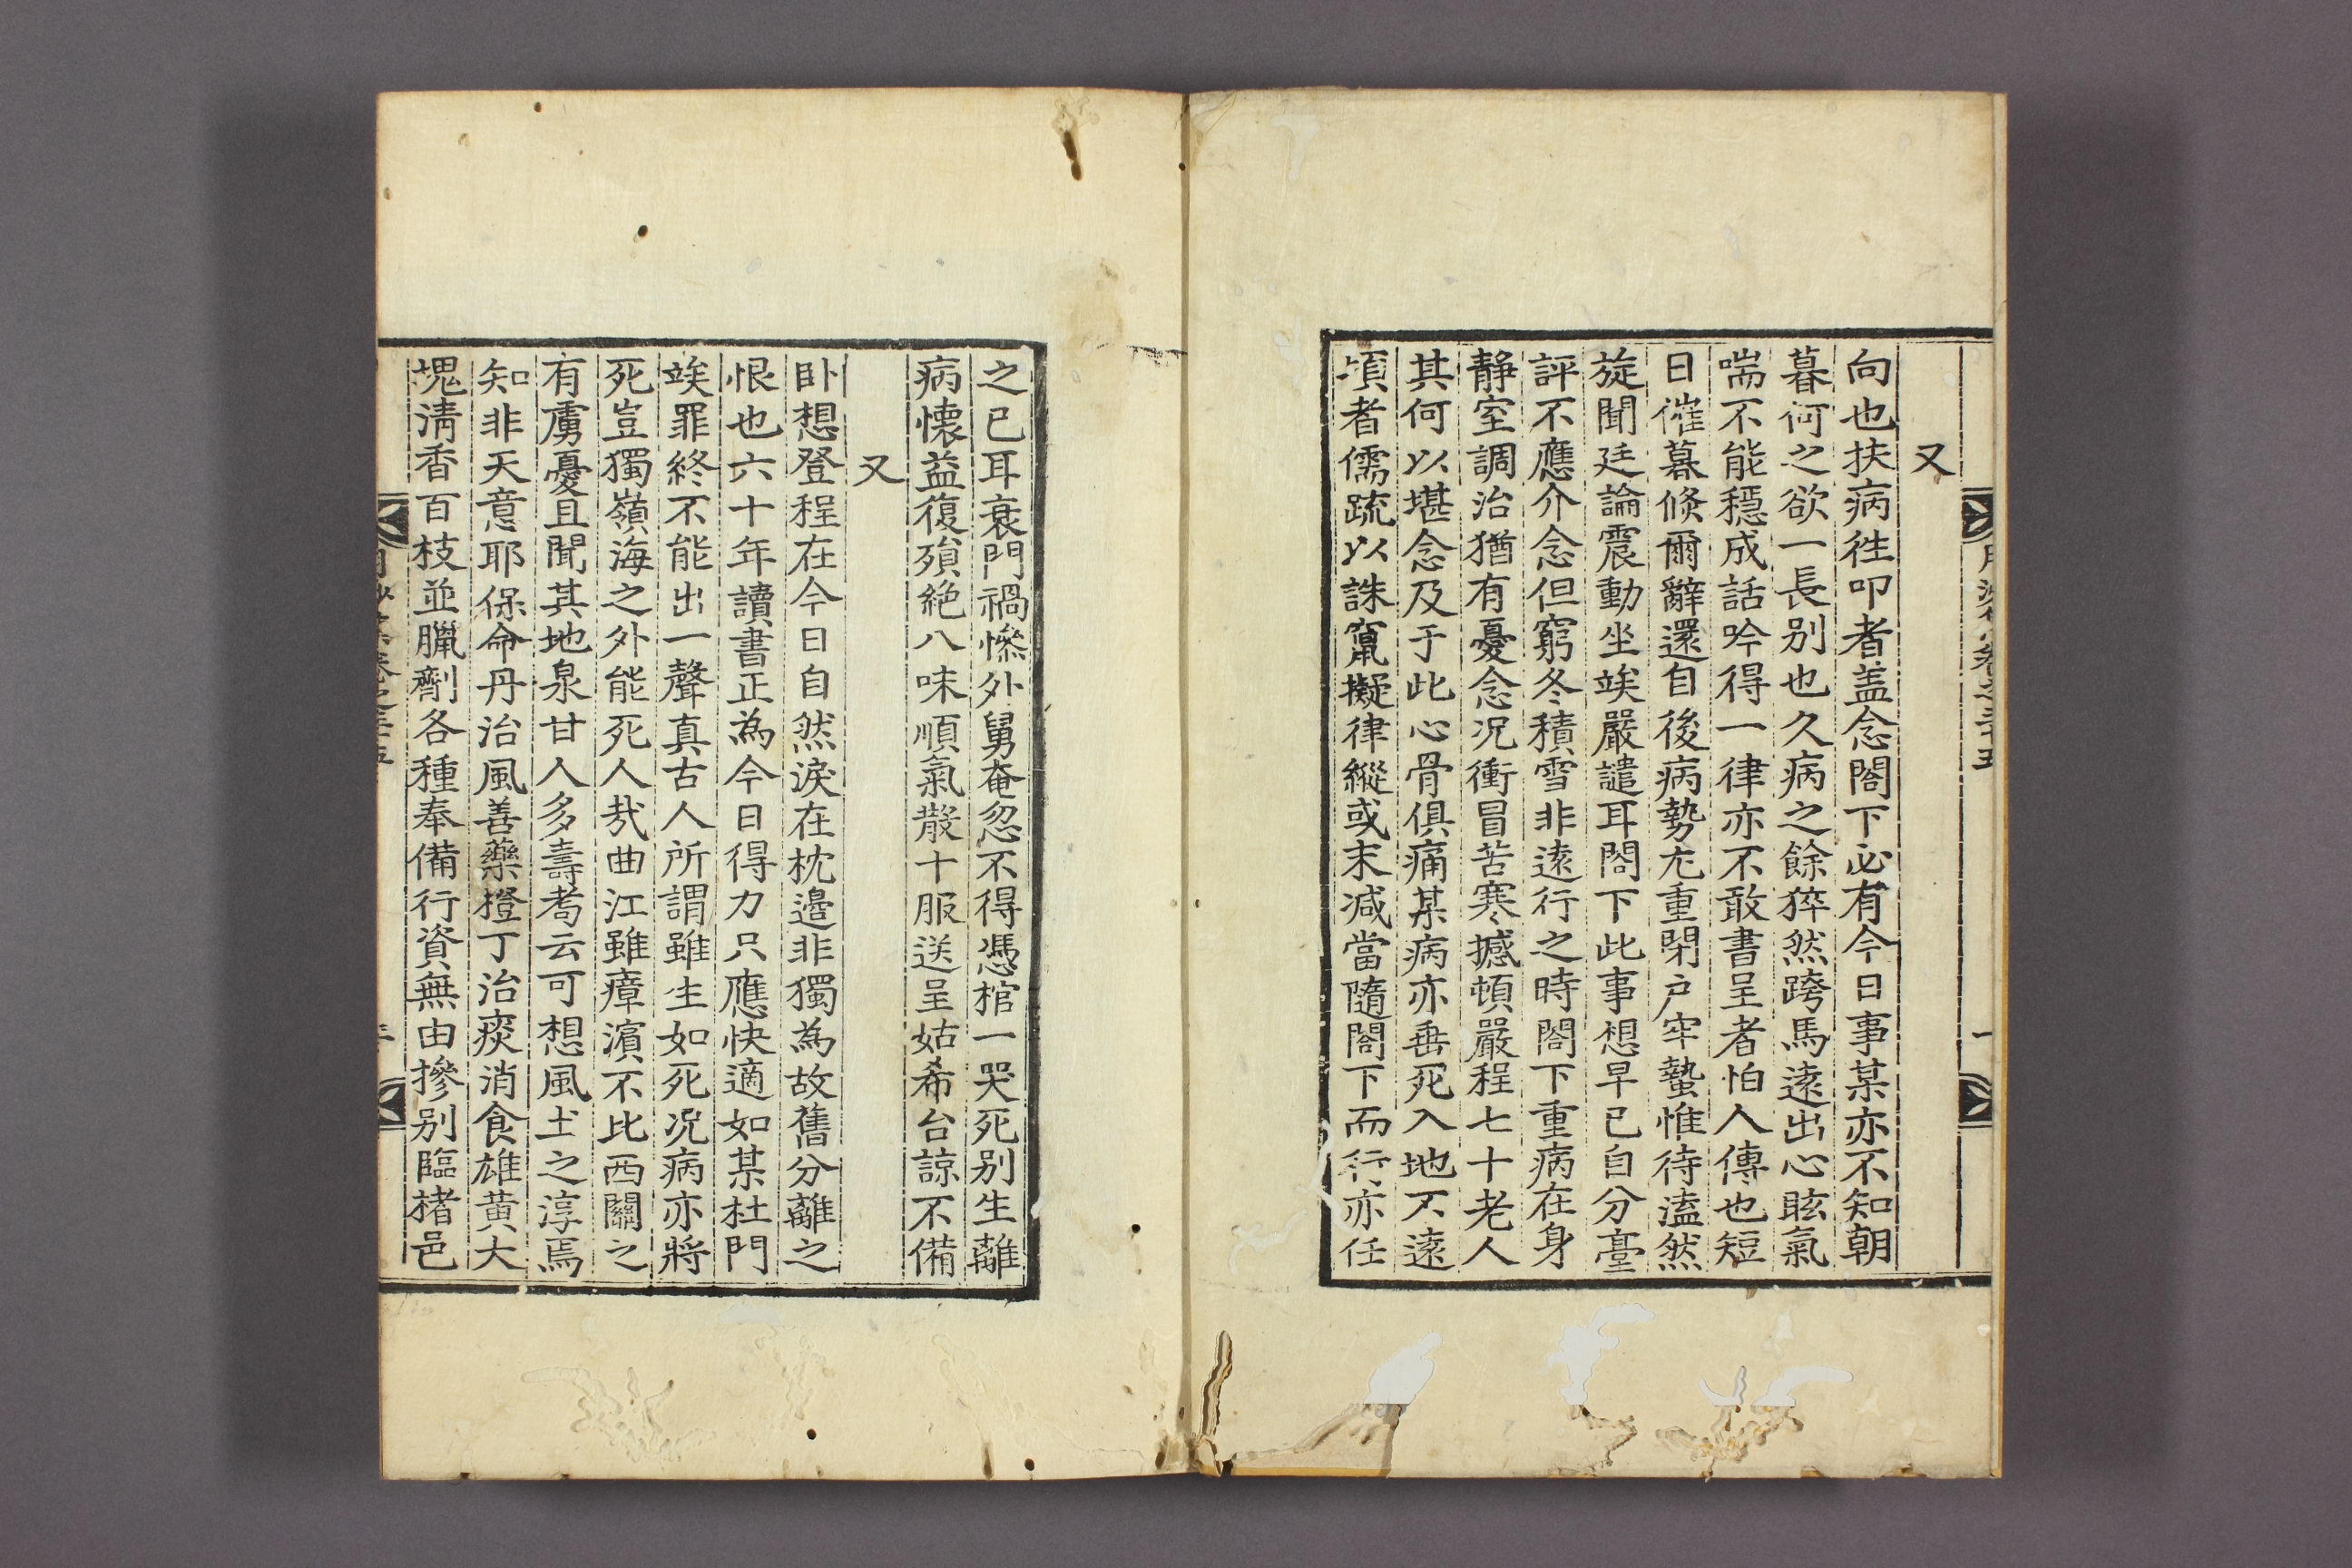 又
向也扶病徃叩者盖念閤下必有今日事某亦不知朝
暮何之欲一長别也久病之餘猝然跨馬遠出心眩氣
喘不能穩成話吟得一律亦不敢書呈者怕人傳也短
日催暮倐爾辭還自後病勢尢重閉户牢蟄惟待溘然
旋聞廷論震動坐竢嚴譴耳閤下此事想早已自分臺
評不應介念但窮冬積雪非遠行之時閤下重病在身
静室調治猶有憂念况衝冒苦寒撼頓嚴程七十老人
其何以堪念及于此心骨俱痛某病亦垂死入地不遠
頃者儒疏以誅竄擬律縱或末减當隨閤下而行亦任
之已耳衰門禍慘外舅奄忽不得憑棺一哭死别生離
病懷益復殞絶八味順氣散十服送呈姑希台諒不備
又
卧想登程在今日自然淚在枕邉非獨為故舊分離之
恨也六十年讀書正為今日得力只應快適如某杜門
竢罪終不能出一聲真古人所謂雖生如死况病亦將
死豈獨嶺海之外能死人㢤曲江雖瘴濵不比西關之
有虜憂且聞其地泉甘人多壽耈云可想風土之淳焉
知非天意耶保命丹治風善藥橙丁治痰消食雄黄大
塊淸香百枝並臘劑各種奉備行資無由摻别臨楮邑